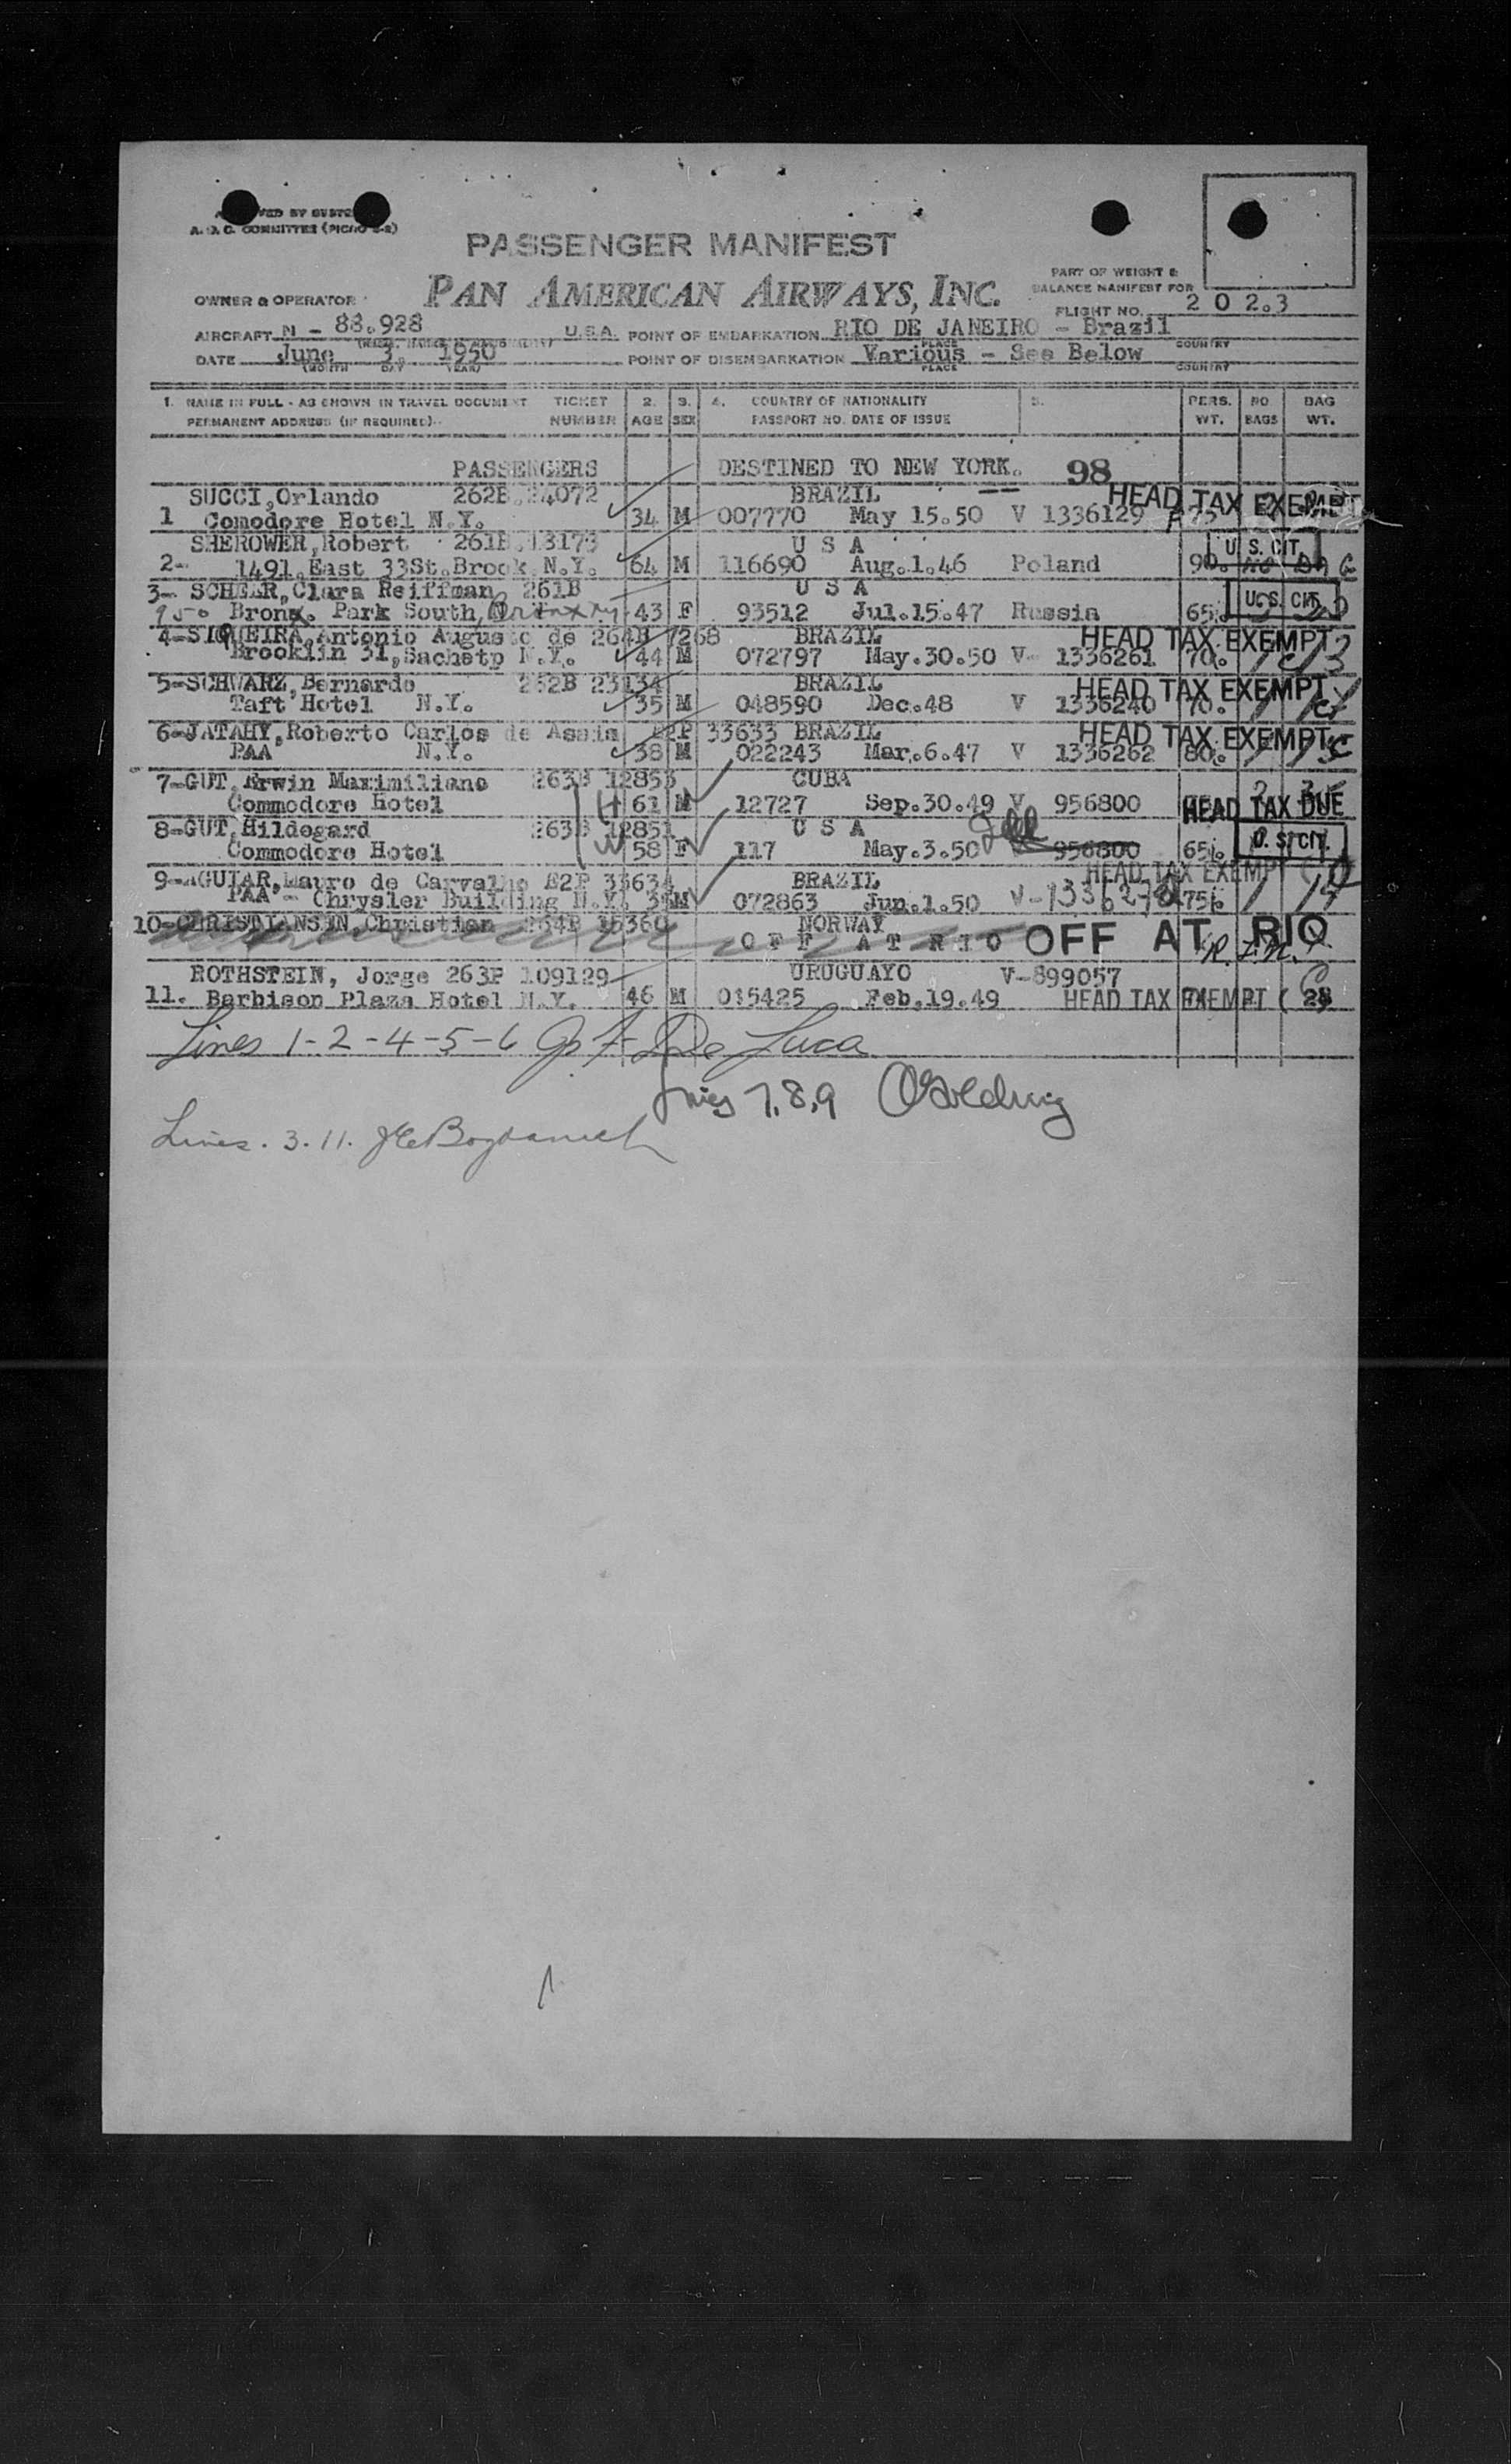 A. O. C. COMMITTEE (PICAO
PASSENGER MANIFEST
PAN AMERICAN AIRWAYS, INC.
PART OF WEIGHT &
BALANCE MANIFEST FOR
OWNER & OPERATOR
FLIGHT NO. 2 0 2.3
AIRCRAFT N - 88.928 U.S.A. POINT OF EMBARKATION RIO DE JANEIRO - Brazil
PLACE COUNTRY
DATE June 3. 1950 POINT OF DISEMBARKATION Various - See Below
(MONTH DAY YEAR) PLACE COUNTRY
1. NAME IN FULL - AS SHOWN IN TRAVEL DOCUMENT TICKET 2. 3. 4. COUNTRY OF NATIONALITY 5. PERS. NO. BAG
PERMANENT ADDRESS (IF REQUIRED) NUMBER AGE SEX PASSPORT NO. DATE OF ISSUE WT. BAGS WT.
PASSENGERS DESTINED TO NEW YORK. 98
SUCCI,Orlando 262B.24072 BRAZIL HEAD TAX EXEMPT
1 Comodore Hotel N.Y. 34 M 007770 May 15.50 V 1336129 75
SHEROWER,Robert 261B.13173 U S A U. S. CIT.
2- 1491.East 33St.Brook N.Y. 64 M 116690 Aug.1.46 Poland 90.
3- SCHEER,Clara Reiffman 261B U S A U. S. CIT.
950 Bronx. Park South, 43 F 93512 Jul.15.47 Russia 65.
4-SIQUEIRA,Antonio Augusto de 264B 7268 BRAZIL HEAD TAX EXEMPT
Brooklin 31,Sachetp N.Y. 44 M 072797 May.30.50 V- 1336261 70.
5-SCHWARZ,Bernardo 262B 23134 BRAZIL HEAD TAX EXEMPT
Taft Hotel N.Y. 35 M 048590 Dec.48 V 1336240 70.
6-JATAHY,Roberto Carlos de Assis E2P 33633 BRAZIL HEAD TAX EXEMPT
PAA N.Y. 38 M 022243 Mar.6.47 V 1336262 80.
7-GUT,Erwin Maximiliano 263B 12853 CUBA
Commodore Hotel H 61 M 12727 Sep.30.49 V 956800 HEAD TAX DUE
8-GUT,Hildegard 263B 12851 U S A
Commodore Hotel W 58 F 117 May.3.50 956800 65. U. S. CIT.
9-AGUIAR,Mauro de Carvalho E2P 33634 BRAZIL HEAD TAX EXEMPT
PAA - Chrysler Building N.Y. M 072863 Jun.1.50 75.
10-CHRISTIANSIN,Christian 264B 15360 NORWAY
O F F A T R I O OFF AT RIO
ROTHSTEIN, Jorge 263P 109129 URUGUAYO V-899057
11. Barbison Plaza Hotel N.Y. 46 M 015425 Feb.19.49 HEAD TAX EXEMPT
Lines 1-2-4-5-6 De Luca
Lines 7,8,9
Lines. 3.11.